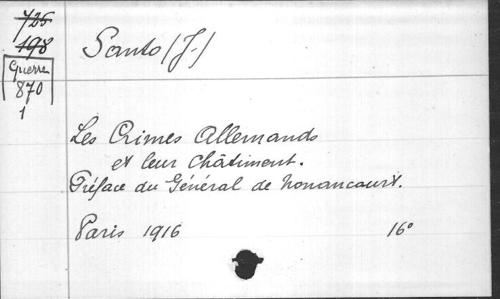 725
198
Guerre
870
1
Santo (J.)
Les Crimes Allemands
et leur Châtiment.
Préface du Général de Nonancourt.
Paris 1916 16°